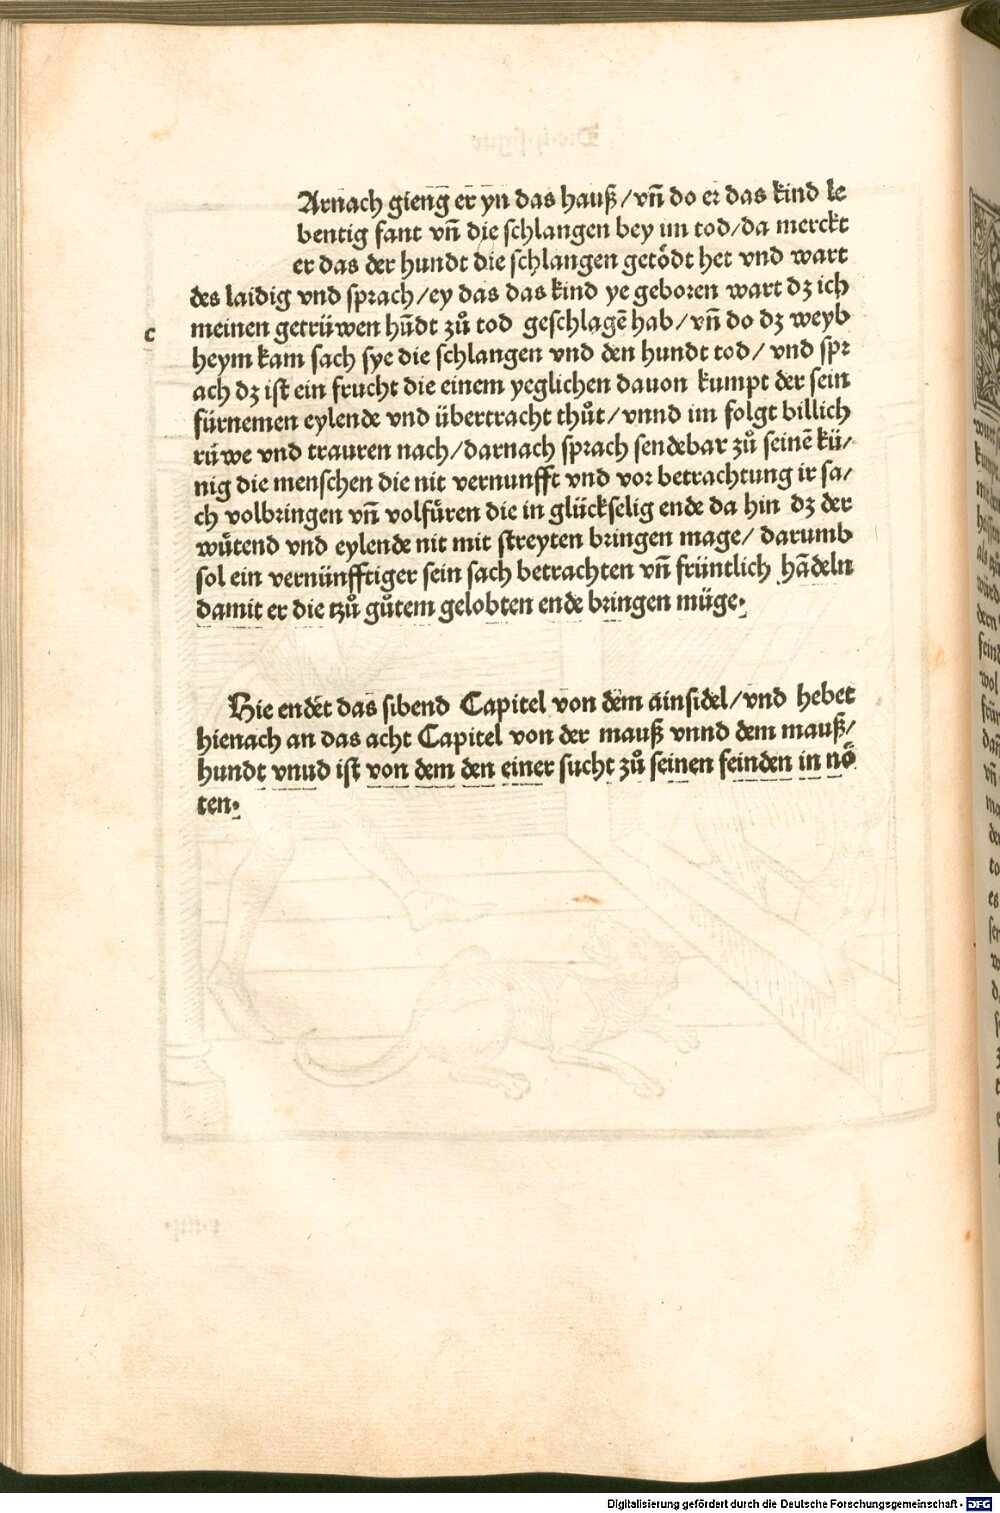 Arnach gieng er yn das hauß/vñ do er das kind le
bentig fant vñ die schlangen bey im tod/da merckt
er das der hundt die schlangen getödt het vnd wart
des laidig vnd sprach/ey das das kind ye geboren wart dz ich
c
meinen getrüwen hūdt zů tod geschlagē hab/vñ do dz weyb
heym kam sach sye die schlangen vnd den hundt tod/ vnd spr
ach dz ist ein frucht die einem yeglichen dauon kumpt der sein
fürnemen eylende vnd übertracht thůt/vnnd im folgt billich
rüwe vnd trauren nach/darnach sprach sendebar zů seinē kü/
nig die menschen die nit vernunfft vnd vor betrachtung ir sa/
ch volbringen vñ volfüren die in glückselig ende da hin dz der
wütend vnd eylende nit mit streyten bringen mage/ darumb
sol ein vernünfftiger sein sach betrachten vñ früntlich hādeln
damit er die tzů gůtem gelobten ende bringen müge.
Hie endet das sibend Capitel von dem ainsidel/vnd hebet
hienach an das acht Capitel von der mauß vnnd dem mauß/
hundt vnud ist von dem den einer sucht zů seinen feinden in nö
ten.
Digitalisierung gefördert durch die Deutsche Forschungsgemeinschaft - DFG